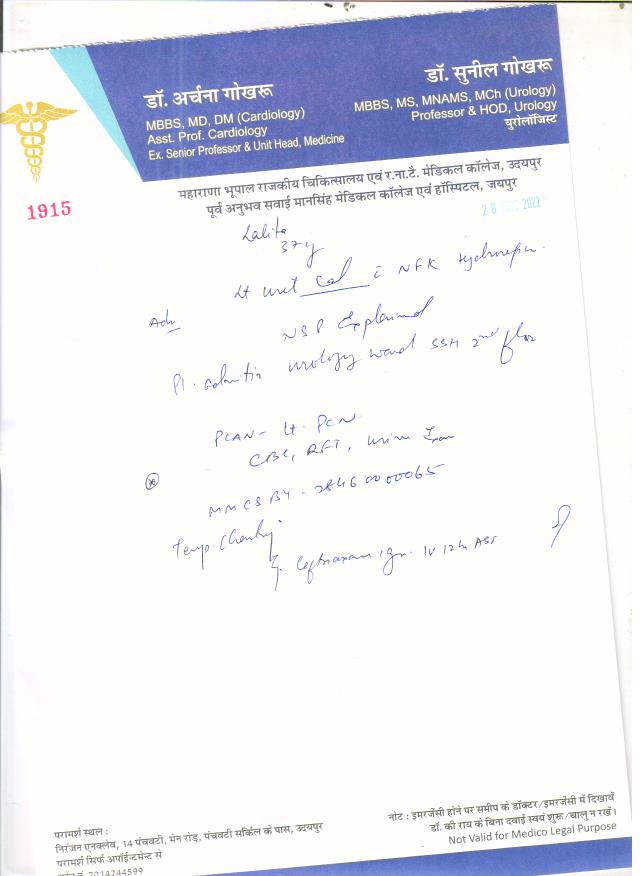 डॉ. अर्चना गोखरू
MBBS, MD, DM (Cardiology)
Asst. Prof. Cardiology
Ex. Senior Professor & Unit Head, Medicine
डॉ. सुनील गोखरू
MBBS, MS, MNAMS, MCh (Urology)
Professor & HOD, Urology
युरोलॉजिस्ट
महाराणा भूपाल राजकीय चिकित्सालय एवं र.ना.टै. मेडिकल कॉलेज, उदयपुर
पूर्व अनुभव सवाई मानसिंह मेडिकल कॉलेज एवं हॉस्पिटल, जयपुर
1915
28 2022
Lalita
37y
Lt Uret Cal c NFK Hydronephro
Adv.
NSP Explained
Pl. admit in urology ward SSH 2nd floor
PLAN - Lt. PCN
CBC, RFT, Urine Exam
MMCSBY - 28460000065
Temp. Charting
Ceftriaxone 1gm. IV 12h AST
परामर्श स्थल :
निरंजन एनक्लेव, 14 पंचवटी, मेन रोड़, पंचवटी सर्किल के पास, उदयपुर
परामर्श सिर्फ अपॉईन्टमेन्ट से
7014244599
नोट : इमरजेंसी होने पर समीप के डॉक्टर/इमरजेंसी में दिखावें
डॉ. की राय के बिना दवाई स्वयं शुरू/चालु न रखें।
Not Valid for Medico Legal Purpose